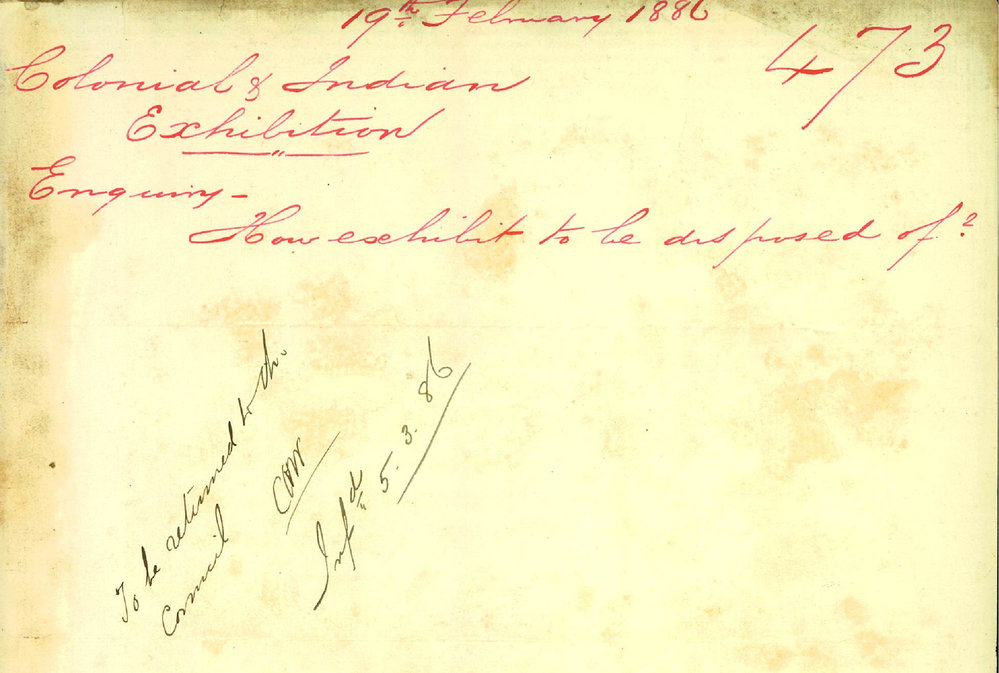 19th February 1886
473
Colonial & Indian
Exhibition
Enquiry -
How exhibit to be disposed of?
To be returned to the
Council
Infd 5.3.86